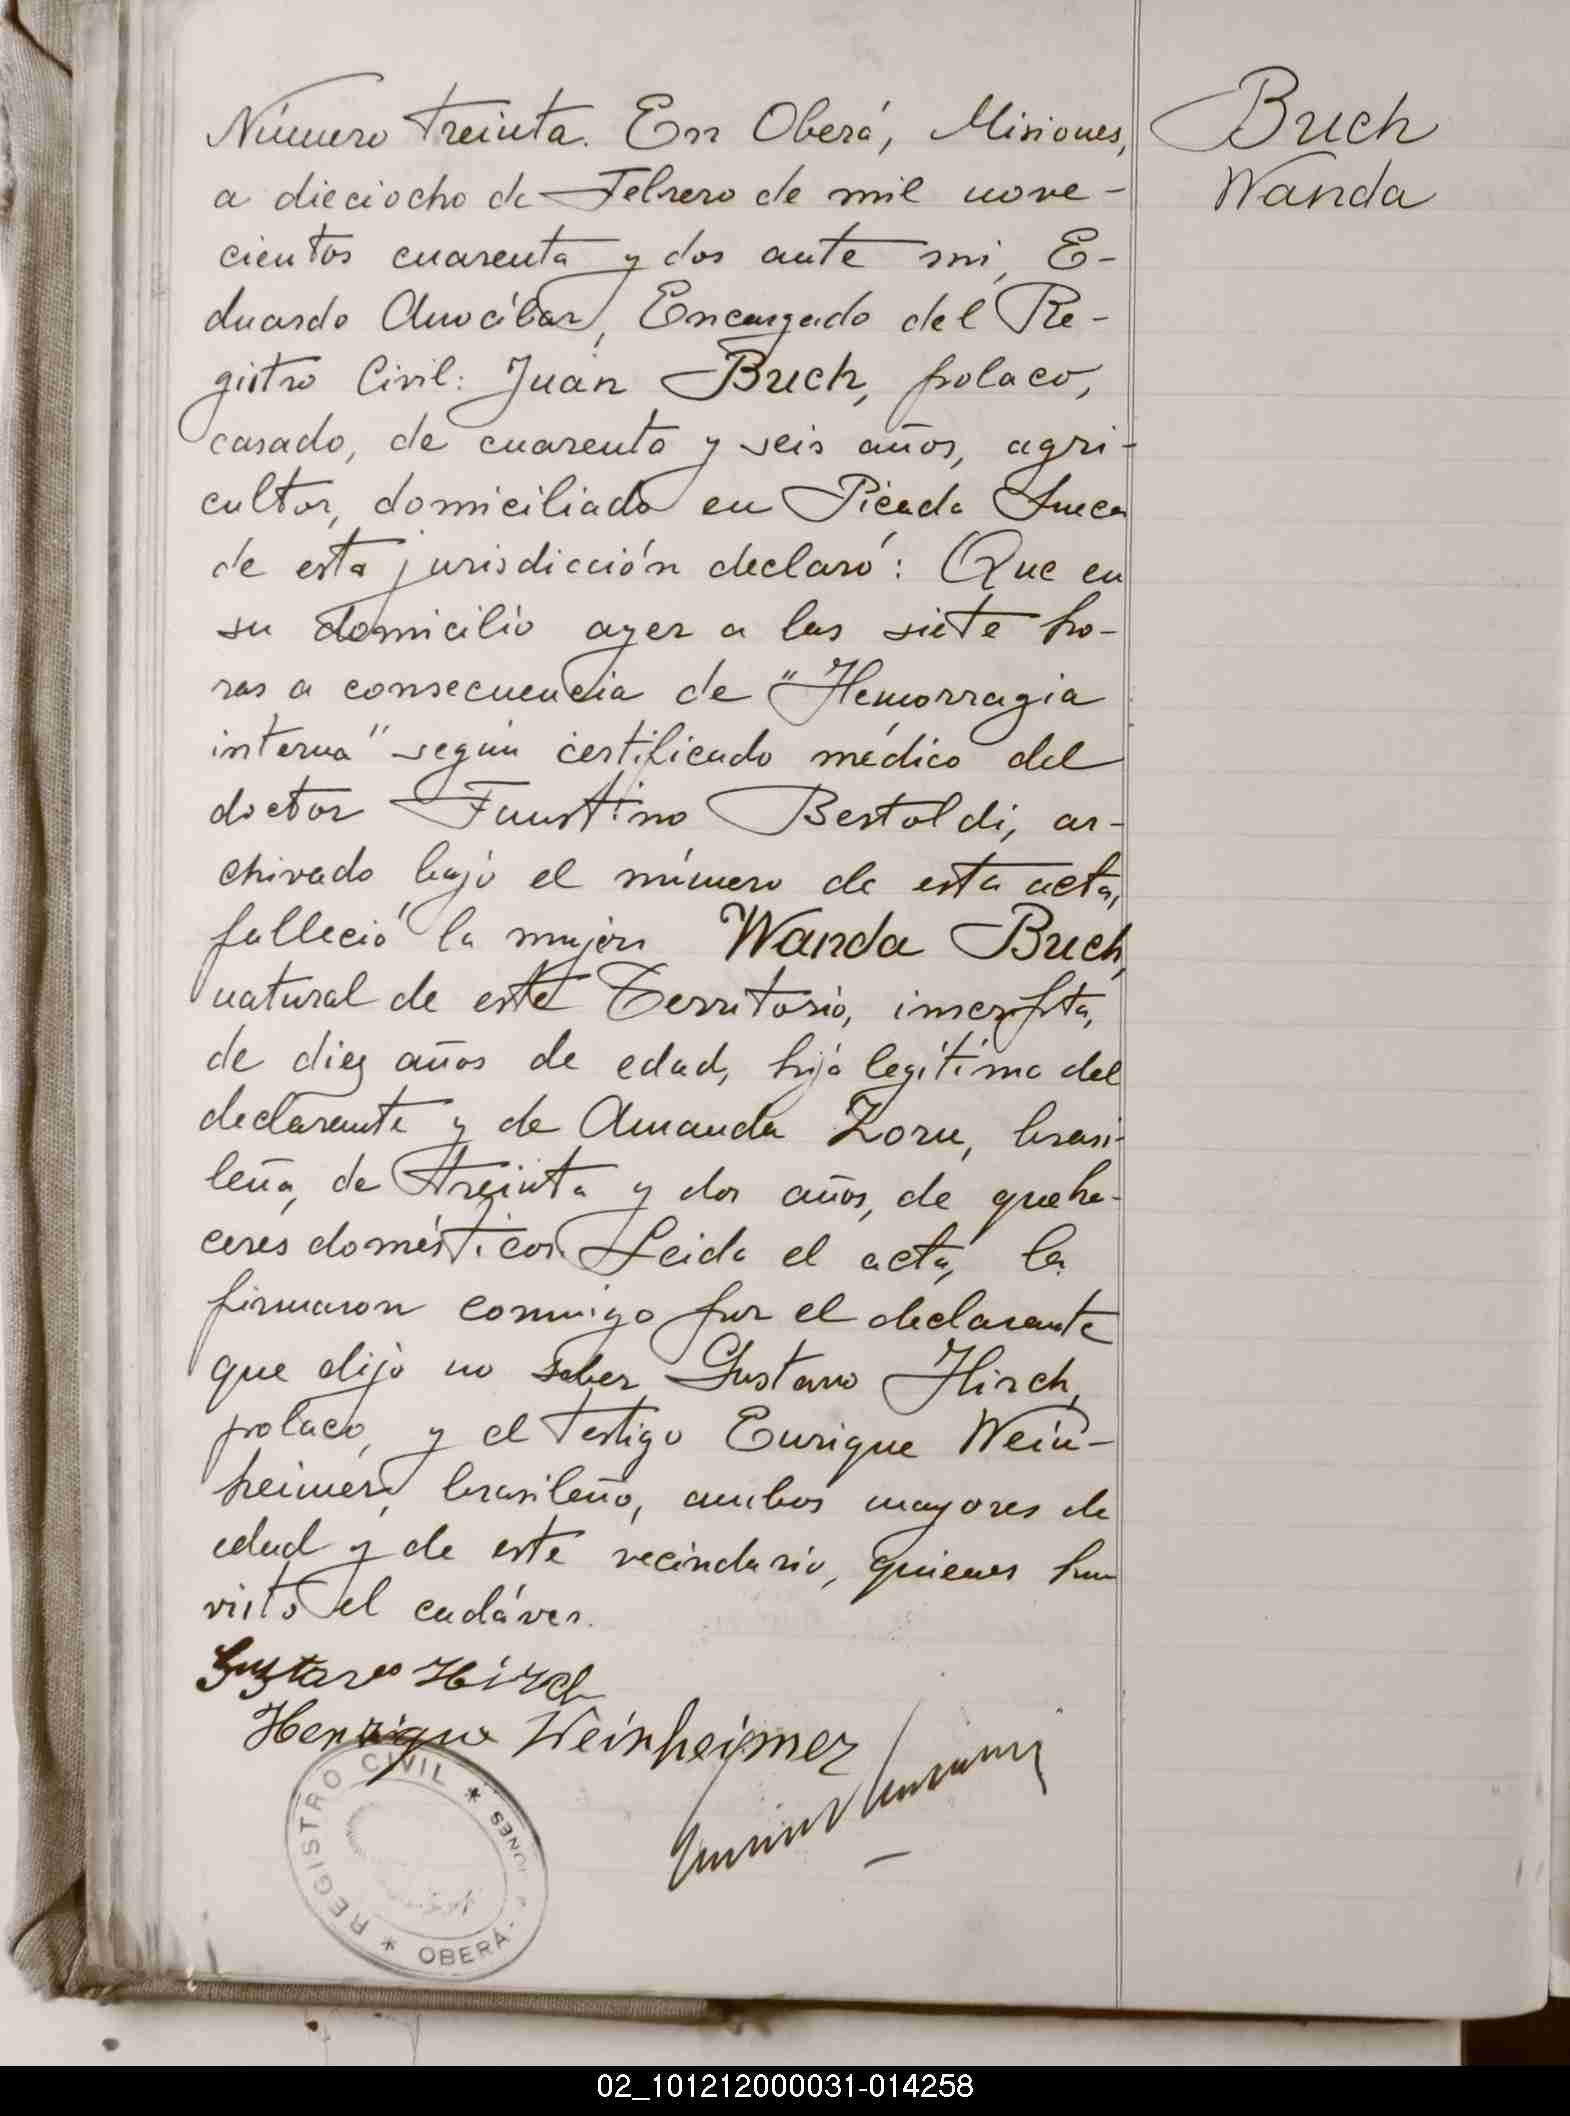 Número treinta. En Oberá, Misiones,
a dieciocho de Febrero de mil nove-
cientos cuarenta y dos ante mi, E-
duardo Amocibar, Encargado del Re-
gistro Civil: Juan Buch, polaco,
casado, de cuarenta y seis años, agri-
cultor, domiciliado en Picada Sueca
de esta jurisdicción declaró: Que en
su domicilio ayer a las siete ho-
ras a consecuencia de "Hemorragia
interna" según certificado médico del
doctor Faustino Bertoldi, ar-
chivado bajo el número de esta acta,
falleció la mujer Wanda Buch,
natural de este Territorio, inscripta,
de diez años de edad, hija legítima del
declarante y de Amanda Zorn, brasi-
leña, de treinta y dos años, de queha-
ceres domésticos. Leida el acta, la
firmaron conmigo por el declarante
que dijo no saber Gustavo Hirch,
polaco, y el testigo Enrique Wein-
heimer, brasileño, ambos mayores de
edad y de este vecindario, quienes han
visto el cadáver.
Gustavo Hirch
Henrique Weinheimer
REGISTRO CIVIL * OBERÁ *
Buch
Wanda
02_101212000031-014258